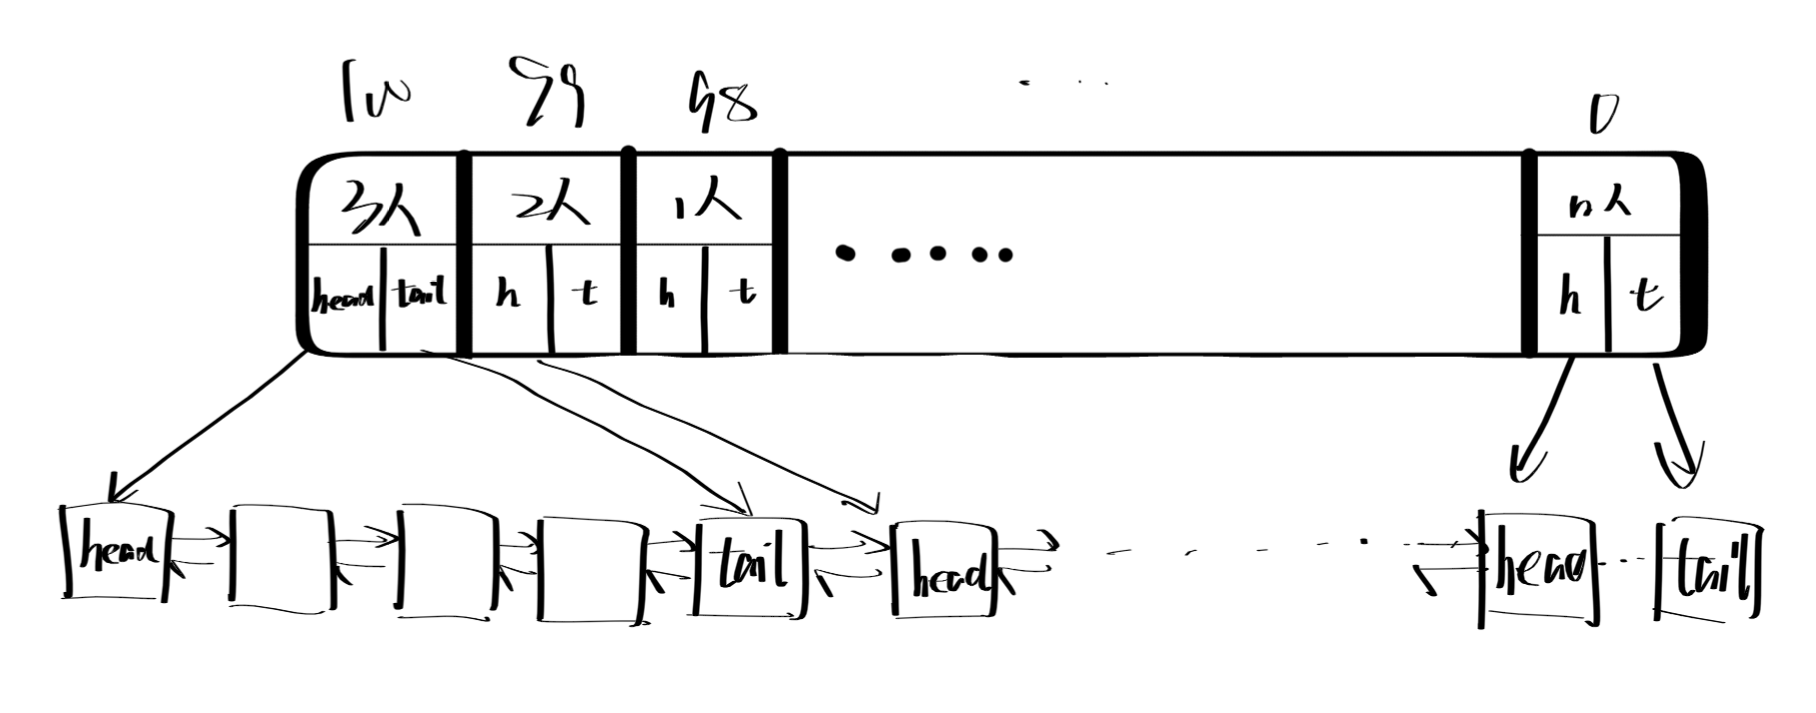 100 99 98 0
3人 2人 1人 n人
head tail h t h t h t
head tail head head tail